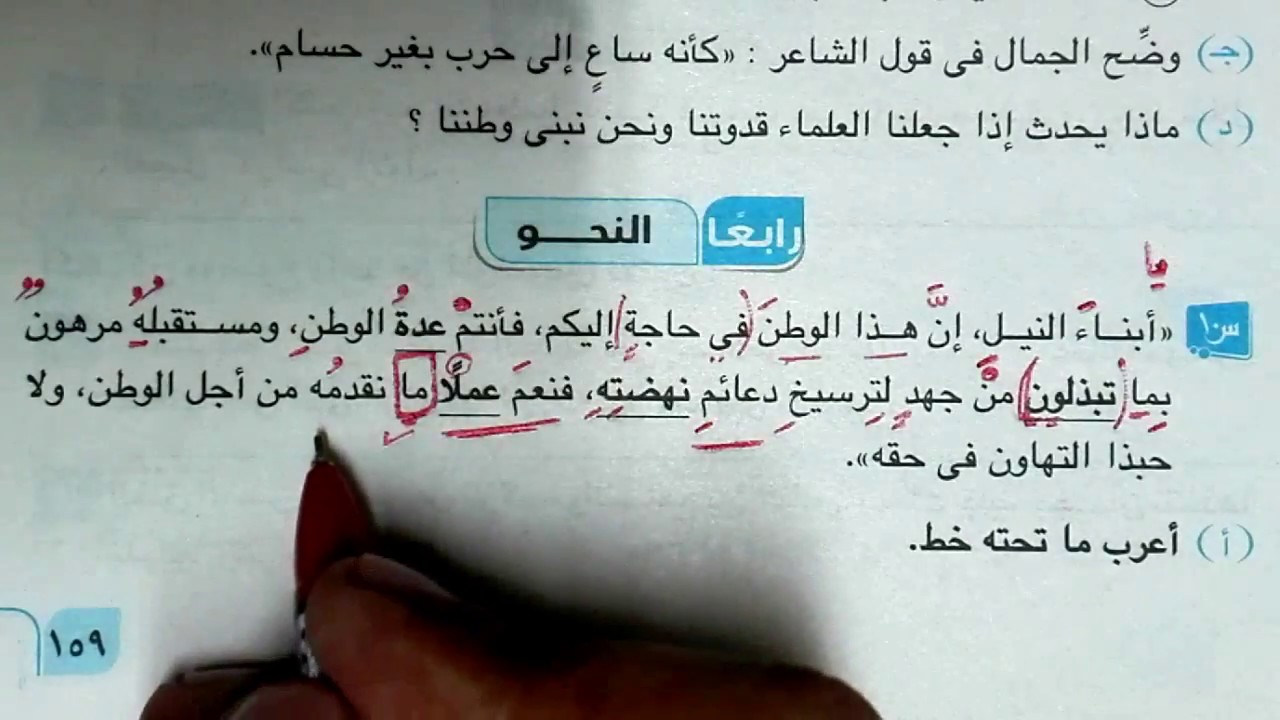 (جـ) وضِّح الجمال فى قول الشاعر : «كأنه ساعٍ إلى حرب بغير حسام».
(د) ماذا يحدث إذا جعلنا العلماء قدوتنا ونحن نبنى وطننا ؟
رابعًا النحـــو
يا
س١ «أبنـاءَ النيـل، إنَّ هـذا الوطنَ في حاجةٍ إليكم، فأنتمْ عدةُ الوطنِ، ومستقبلُهُ مرهونٌ
بِما تبذلون منْ جهدٍ لترسيخِ دعائمِ نهضتِهِ، فنعمَ عملًا ما نقدمُه من أجل الوطن، ولا
حبذا التهاون فى حقه».
(أ) أعرب ما تحته خط.
١٥٩